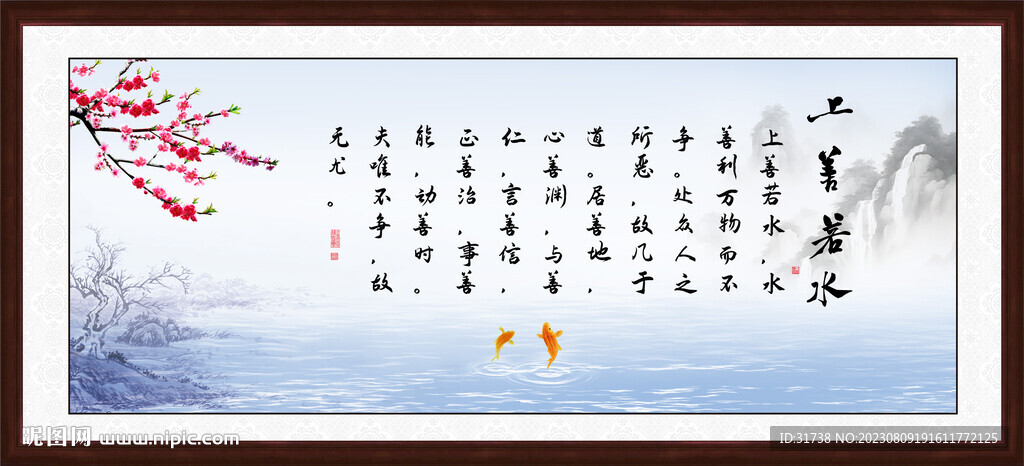 上善若水
上善若水,水
善利万物而不
争。处众人之
所恶,故几于
道。居善地,
心善渊,与善
仁,言善信,
正善治,事善
能,动善时。
夫唯不争,故
无尤。
昵图网 www.nipic.com
ID:31738 NO:20230809191611772125